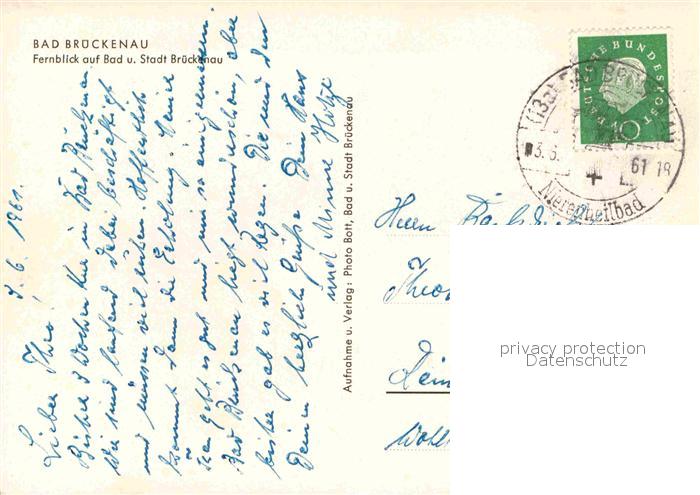 BAD BRÜCKENAU
Fernblick auf Bad u. Stadt Brückenau
3. 6. 1961.
Lieber Theo!
Bisher 2 Wochen hier in Bad Brückenau.
Wir sind laufend dabei beschäftigt
und müssen viel ruhen. Hoffentlich
kommt dann die Erholung. Meine
geht es gut und mir so einigermassen.
Bad Brückenau liegt wunderschön, aber
bisher gab es viel Regen. Dir und den
Deinen herzliche Grüße Dein Hans
und Minne
Aufnahme u. Verlag: Photo Bott, Bad u. Stadt Brückenau
DEUTSCHE BUNDESPOST
10
(13a) BAD
3.6.61 18
Nierenheilbad
Herrn
Theo
privacy protection
Datenschutz